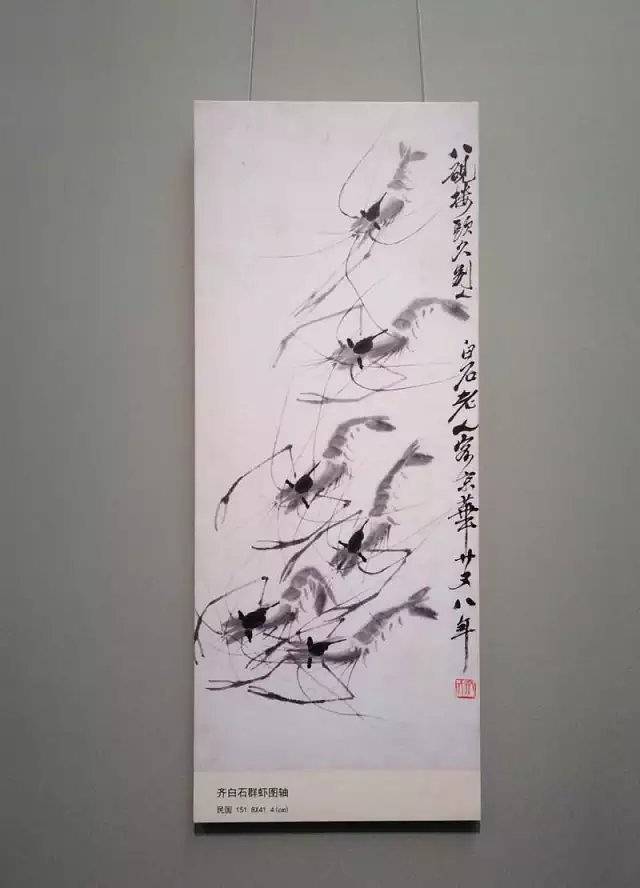 八硯樓頭久別人 白石老人客京華廿又八年
齐白石群虾图轴
民国 151.8X41.4(cm)